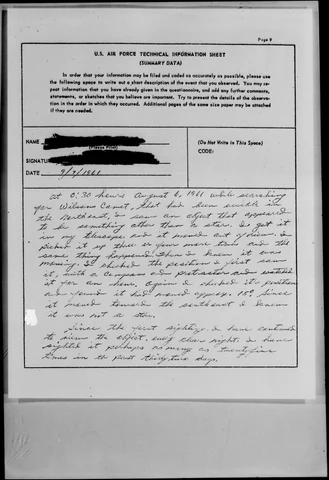 Page 9
U.S. AIR FORCE TECHNICAL INFORMATION SHEET
(SUMMARY DATA)
In order that your information may be filed and coded as accurately as possible, please use
the following space to write out a short description of the event that you observed. You may re-
peat information that you have already given in the questionnaire, and add any further comments,
statements, or sketches that you believe are important. Try to present the details of the observa-
tion in the order in which they occurred. Additional pages of the same size paper may be attached
if they are needed.
NAME
(Please Print)
(Do Not Write in This Space)
CODE:
SIGNATU
DATE 9/7/1961
at 0:30 hours August 6, 1961 while searching
for Wilsons Comet, that had been visible in
the Northeast, I saw an object that appeared
to be something other than a star. I got it
in my telescope and it moved out of view. I
picked it up three or four more times and the
same thing happened. Then I knew it was
moving. I checked the position I first saw
it, with a compass and protractor and watched
it for an hour, again I checked its position
and found it had moved approx. 15°. Since
it moved towards the southeast I knew
it was not a star.
Since the first sighting I have continued
to view the object, every clear night. I have
sighted it perhaps as many as twenty five
times in the past thirty two days.